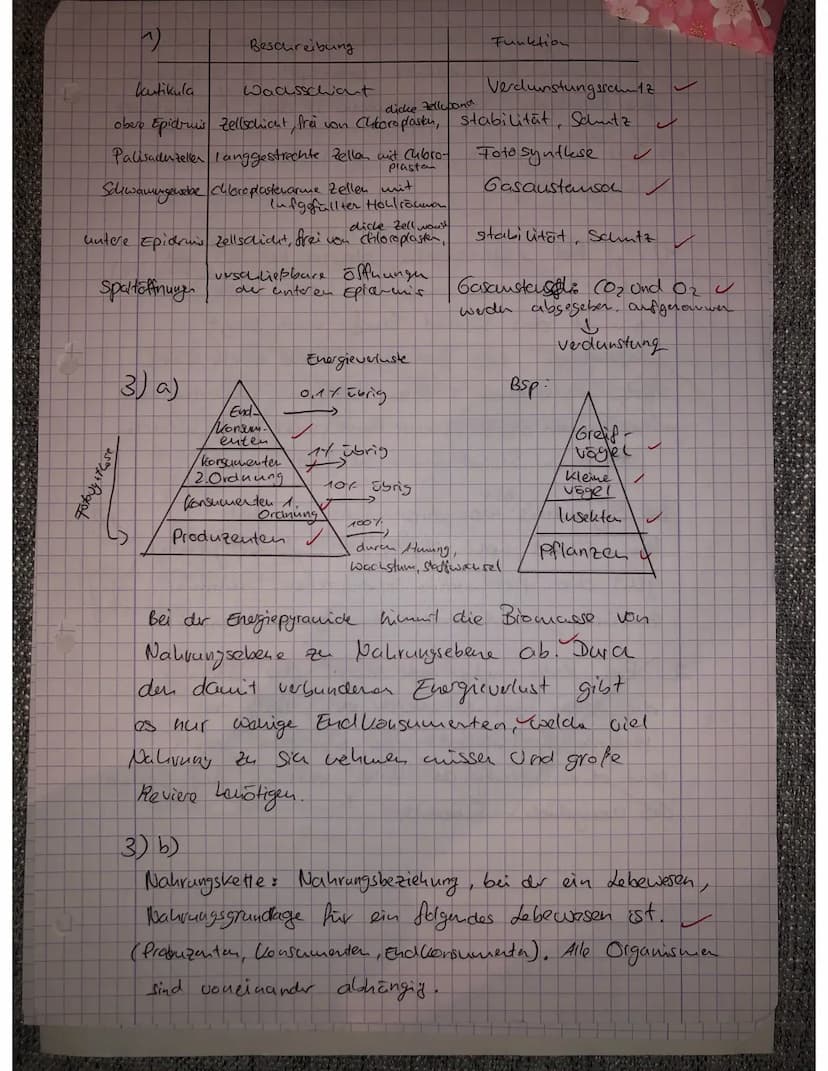 1)
Beschreibung
Funktion
Kutikula Wachsschicht Verdunstungsschutz
dicke Zellwand
obere Epidermis Zellschicht, frei von Chloroplasten, Stabilität, Schutz
Palisadenzellen langgestreckte Zellen mit Chloro- Fotosynthese
plasten
Schwammgewebe Chloroplastenarme Zellen mit Gasaustausch
luftgefüllter Hohlräumen
dicke Zellwand
untere Epidermis Zellschicht, frei von Chloroplasten, Stabilität, Schutz
verschließbare Öffnungen
Spaltöffnungen der unteren Epidermis Gasaustausch: CO2 und O2
werden abgegeben. aufgenommen
Verdunstung
Energieverluste
3) a)
Bsp:
0,1% übrig
End-
konsum-
enten
1% übrig
Konsumenten
2. Ordnung
10% übrig
Konsumenten 1.
Ordnung
100%
Produzenten
durch Atmung,
Wachstum, Stoffwechsel
Fotosynthese
Greif-
vögel
Kleine
Vögel
Insekten
Pflanzen
Bei der Energiepyramide nimmt die Biomasse von
Nahrungsebene zu Nahrungsebene ab. Durch
den damit verbundenen Energieverlust gibt
es nur wenige Endkonsumenten, welche viel
Nahrung zu sich nehmen müssen und große
Reviere benötigen.
3) b)
Nahrungskette: Nahrungsbeziehung, bei der ein Lebewesen,
Nahrungsgrundlage für ein folgendes Lebewesen ist.
(Produzenten, Konsumenten, Endkonsumenten). Alle Organismen
sind voneinander abhängig.